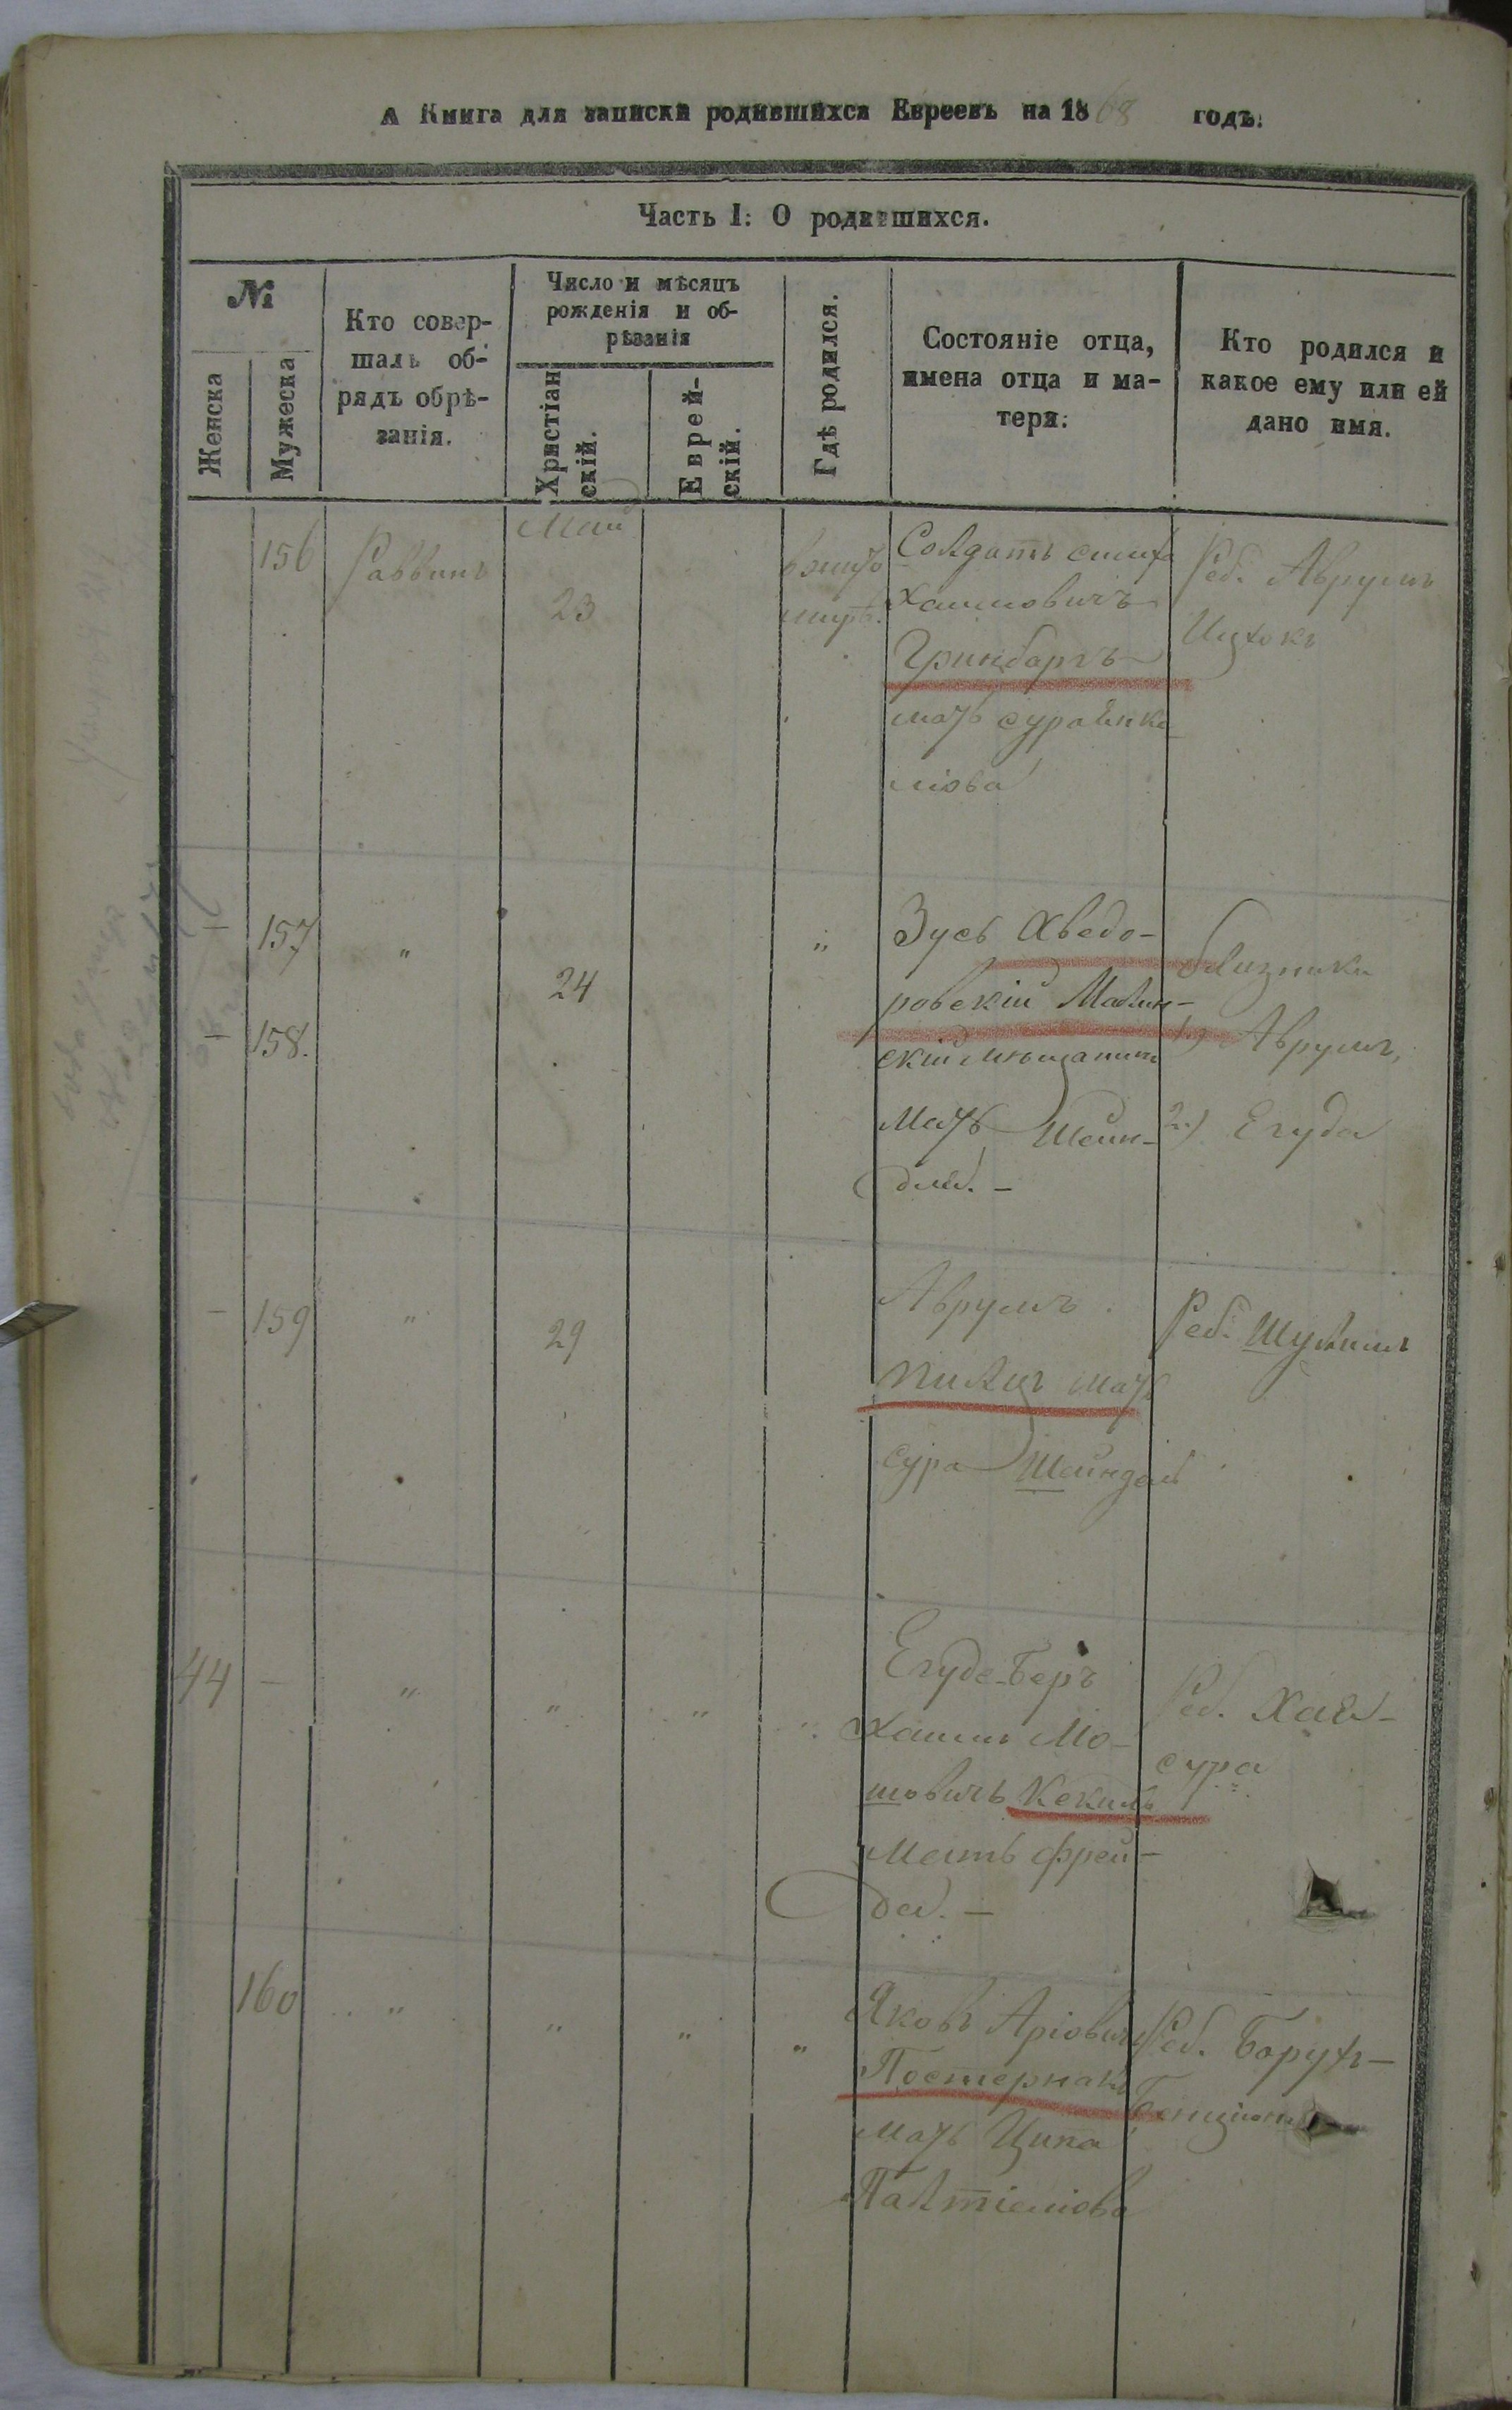 А Книга для записки родившихся Евреевъ на 1868 годъ:
Часть I: О родившихся.
№
Женска
Мужеска
Кто совер-
шалъ об-
рядъ обрѣ-
занія.
Число и мѣсяцъ
рожденія и об-
рѣзанія
Христіан
скій.
Еврей-
скій.
Гдѣ родился.
Состояніе отца,
имена отца и ма-
тери:
Кто родился и
какое ему или ей
дано имя.
156
Раввинъ
Май
23
Солдатъ
Хаимовичъ
Гринбаргъ
мать сура
Реб. Аврумъ
Ицхокъ
– 157 " "
– 158.
24
Зусь Хведо-
ровскій Малин-
скій мѣщанинъ
Мать Шейн-
для. –
близники
1.) Аврумъ,
2.) Егуда
– 159 " 29
Аврумъ
пилцъ мать
сура Шейндель
Реб. Шулимъ
44 – " " " "
Егуде-Беръ
Хаимъ Мо-
шовичъ Кекишъ
Мать фрей-
да. –
Реб. Хая-
сура
160 " " " "
Яковъ Аріовичъ
Постернакъ
мать Ципа
Палтіеліова
Реб. Борухъ –
Бенціонъ